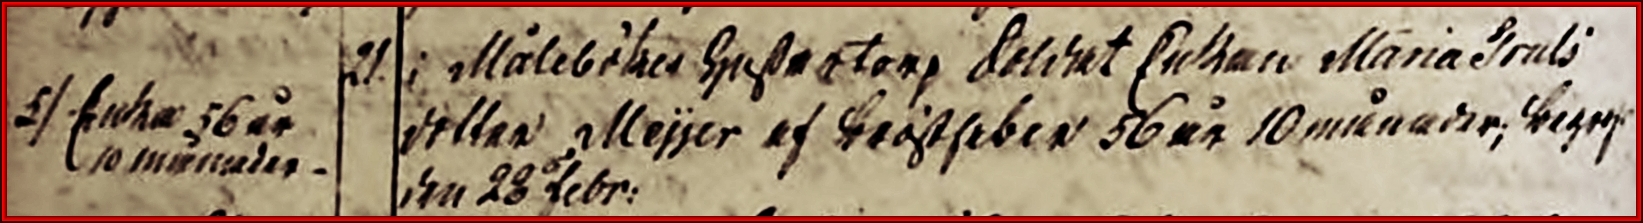 21. i Målebökes Gustastorp Soldat Enkan Maria Truls
5/ Enka 56 år
dotter Meijer af bröstfeber 56 år 10 månader, begrofs
10 månader -
den 28 Febr: